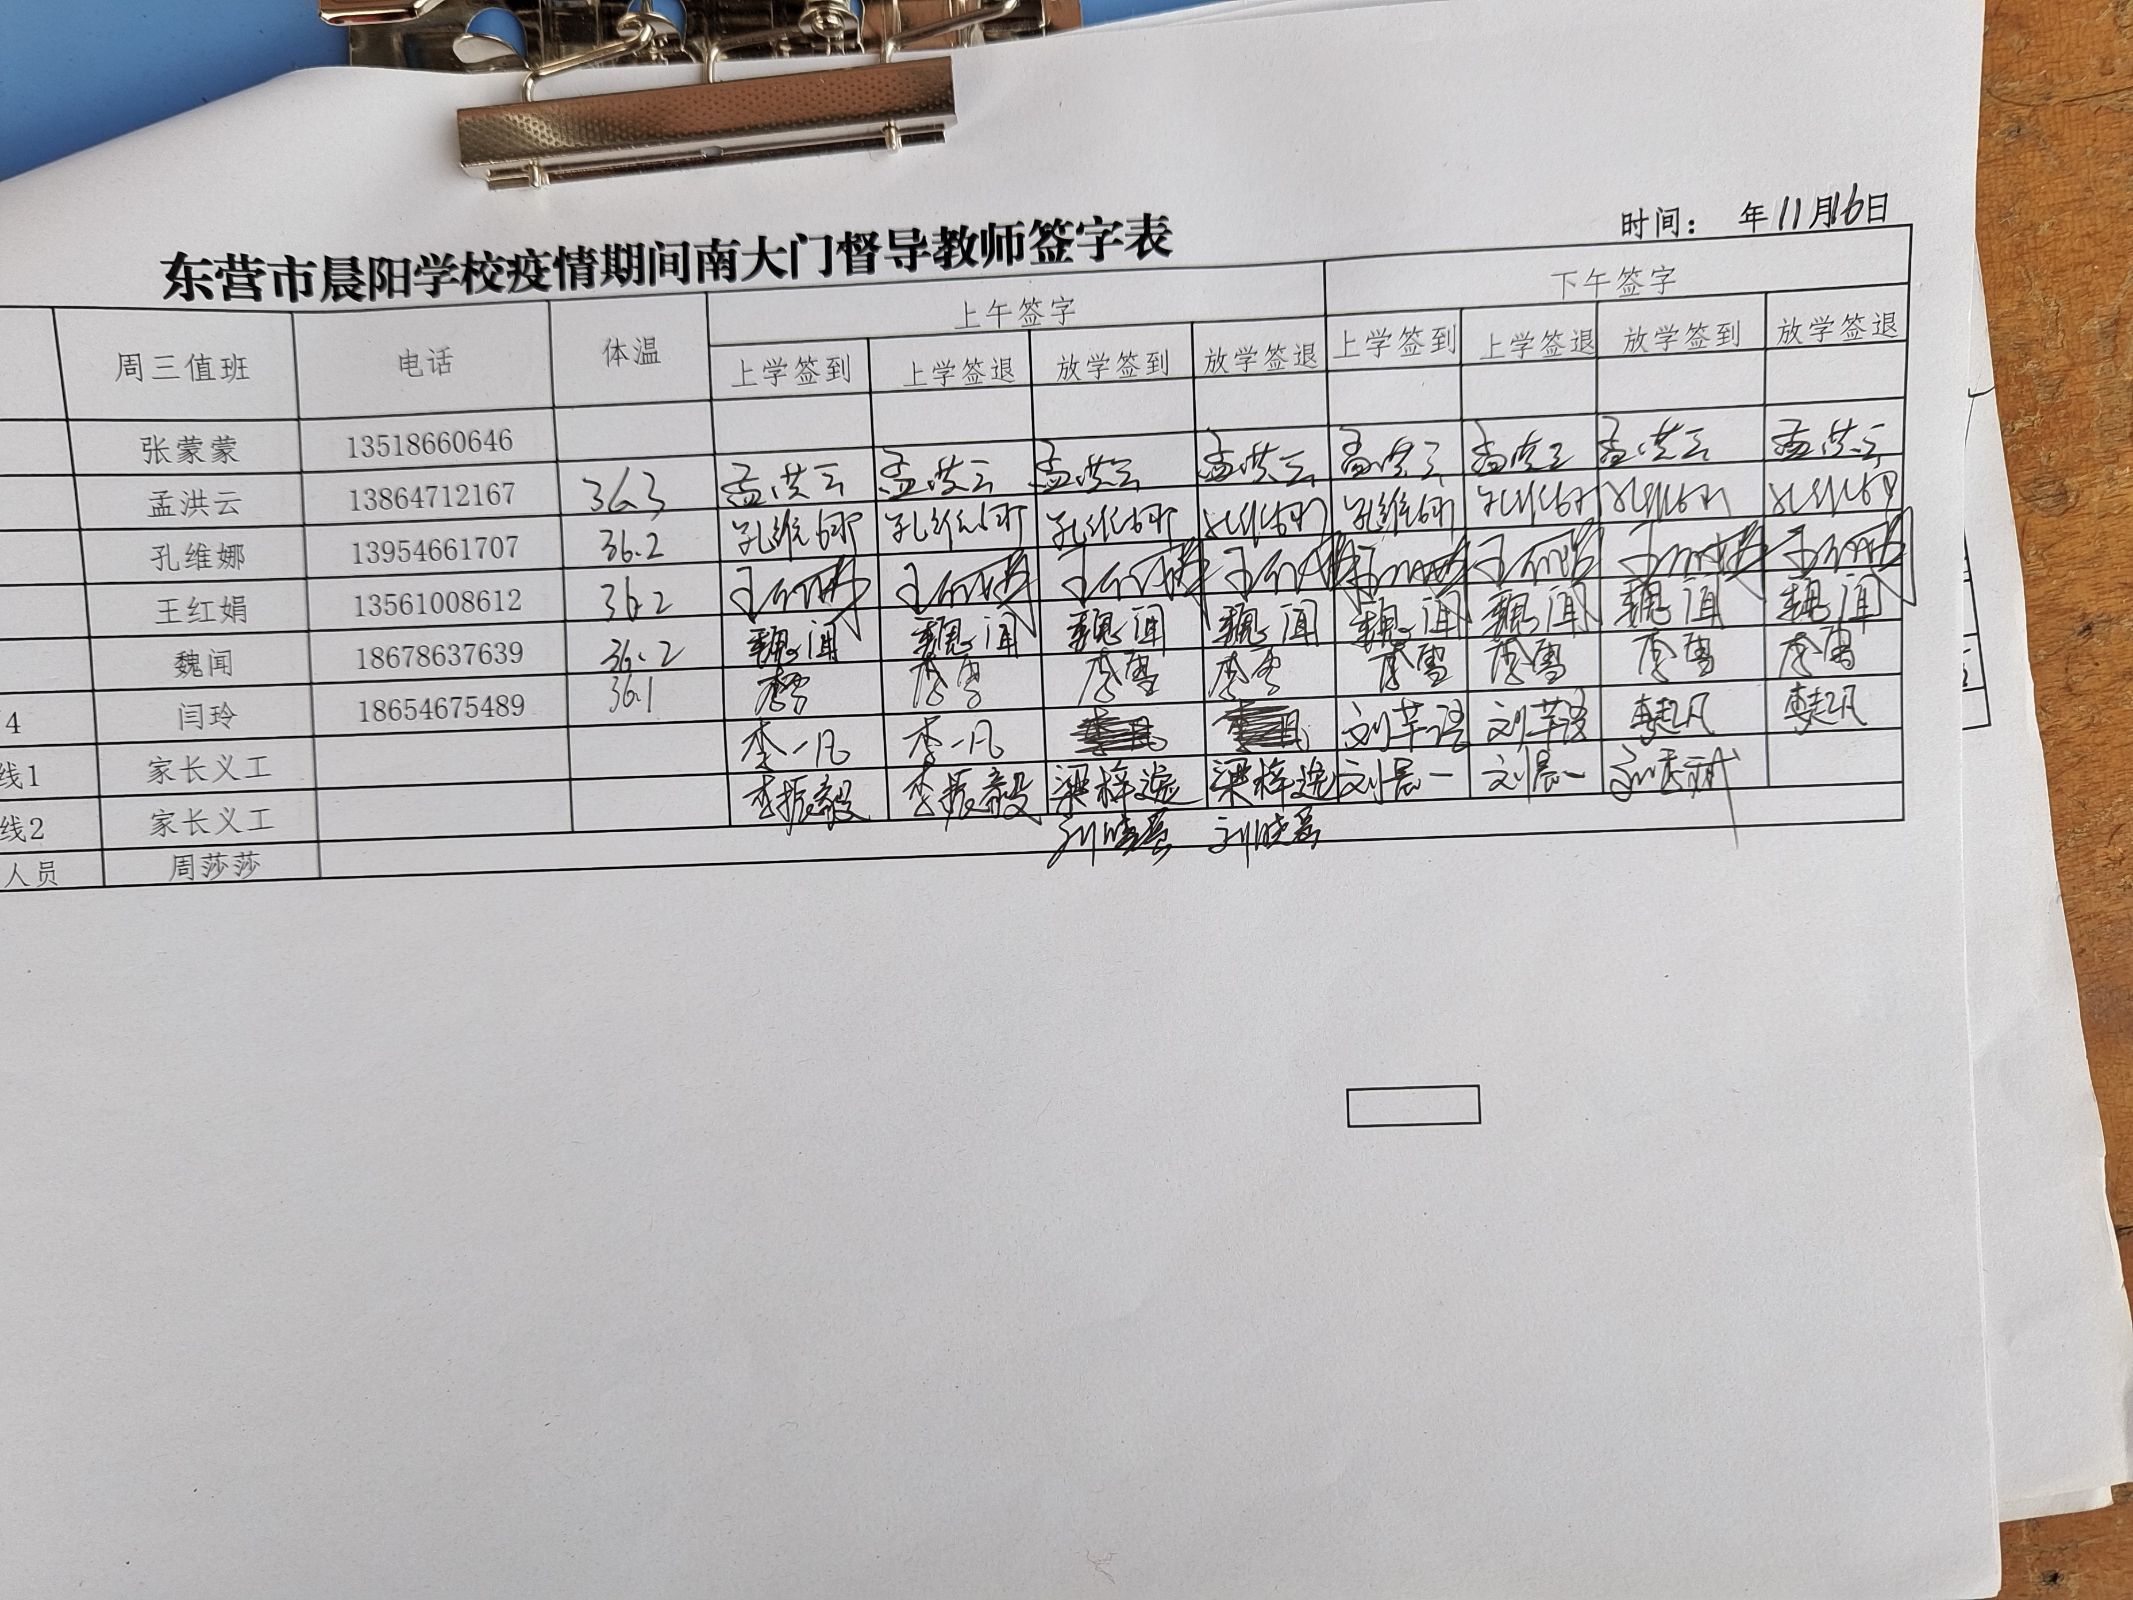 东营市晨阳学校疫情期间南大门督导教师签字表
时间： 年11月16日
周三值班 电话 体温 上午签字 下午签字
上学签到 上学签退 放学签到 放学签退 上学签到 上学签退 放学签到 放学签退
张蒙蒙 13518660646
孟洪云 13864712167 36.3 孟洪云 孟洪云 孟洪云 孟洪云 孟洪云 孟洪云 孟洪云 孟洪云
孔维娜 13954661707 36.2 孔维娜 孔维娜 孔维娜 孔维娜 孔维娜 孔维娜 孔维娜 孔维娜
王红娟 13561008612 36.2 王红娟 王红娟 王红娟 王红娟 王红娟 王红娟 王红娟 王红娟
魏闻 18678637639 36.2 魏闻 魏闻 魏闻 魏闻 魏闻 魏闻 魏闻 魏闻
4 闫玲 18654675489 36.1 李雪 李雪 李雪 李雪 李雪 李雪 李雪 李雪
线1 家长义工 李一凡 李一凡 李起凡 李起凡
线2 家长义工 李振毅 李振毅 刘晨一 刘晨一
人员 周莎莎